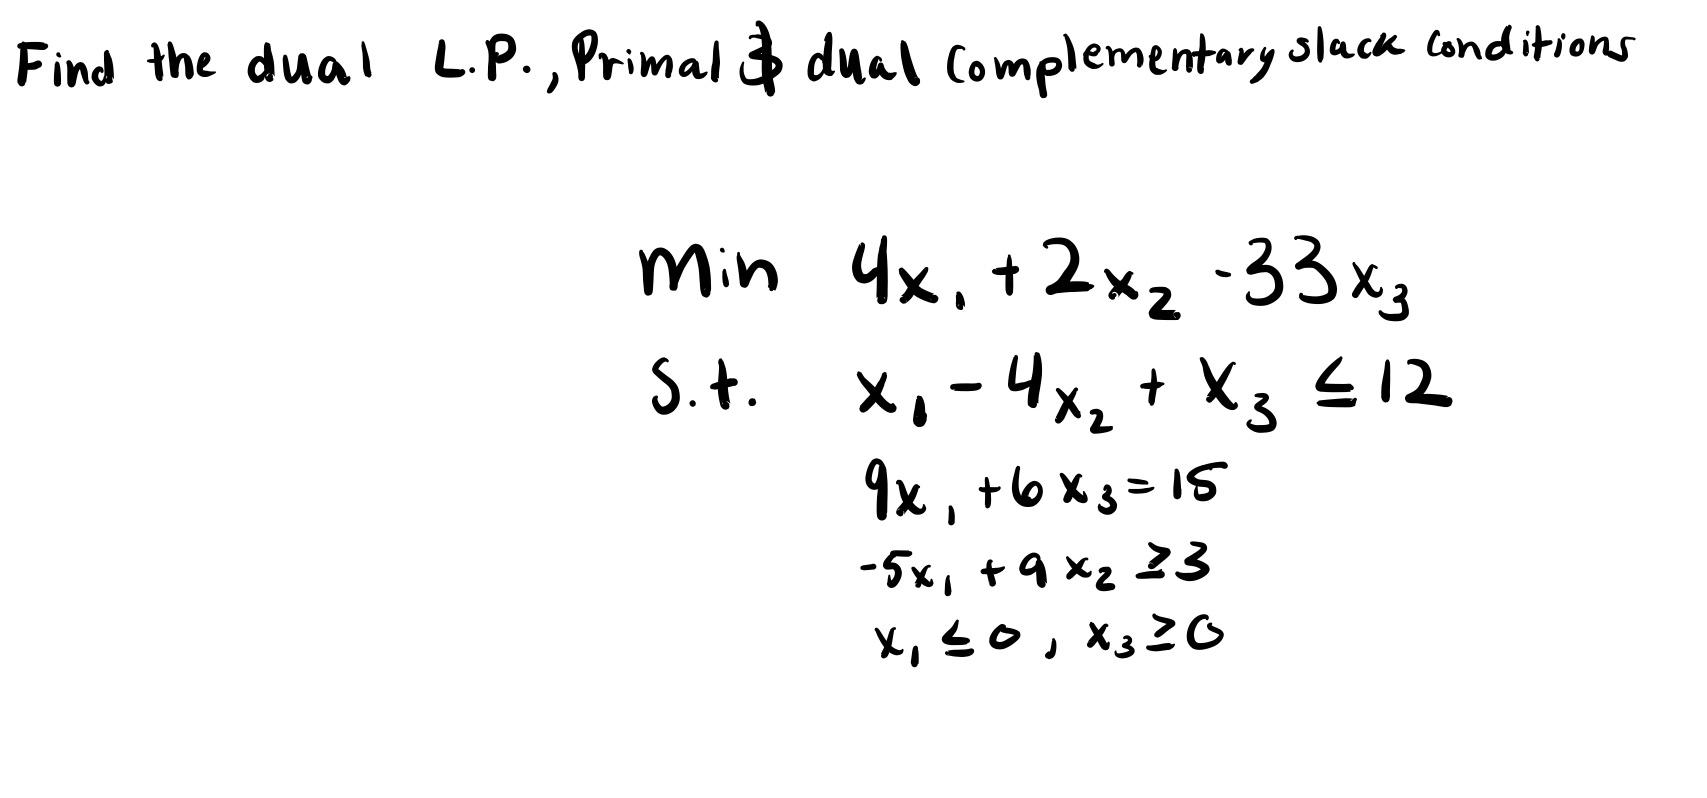 Find the dual L.P., Primal & dual Complementary slack conditions
min 4x₁ + 2x₂ -33x₃
s.t. x₁ - 4x₂ + x₃ ≤ 12
9x₁ + 6x₃ = 15
-5x₁ + 9x₂ ≥ 3
x₁ ≤ 0, x₃ ≥ 0